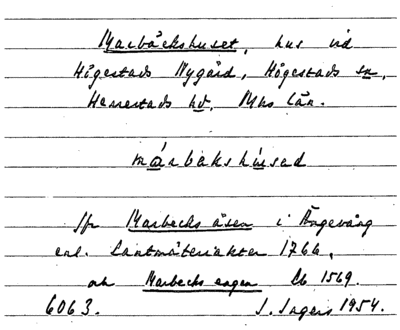 Marbäckshuset, hus vid
Högestads Nygård, Högestads sn,
Herrestads hd, Mhs län.
márbakshúsad
Jfr Marbecks åsen i Ängavång
enl. Lantmäteriakten 1766,
och Marbecks engen Lb 1569.
6063. I. Ingers 1954.